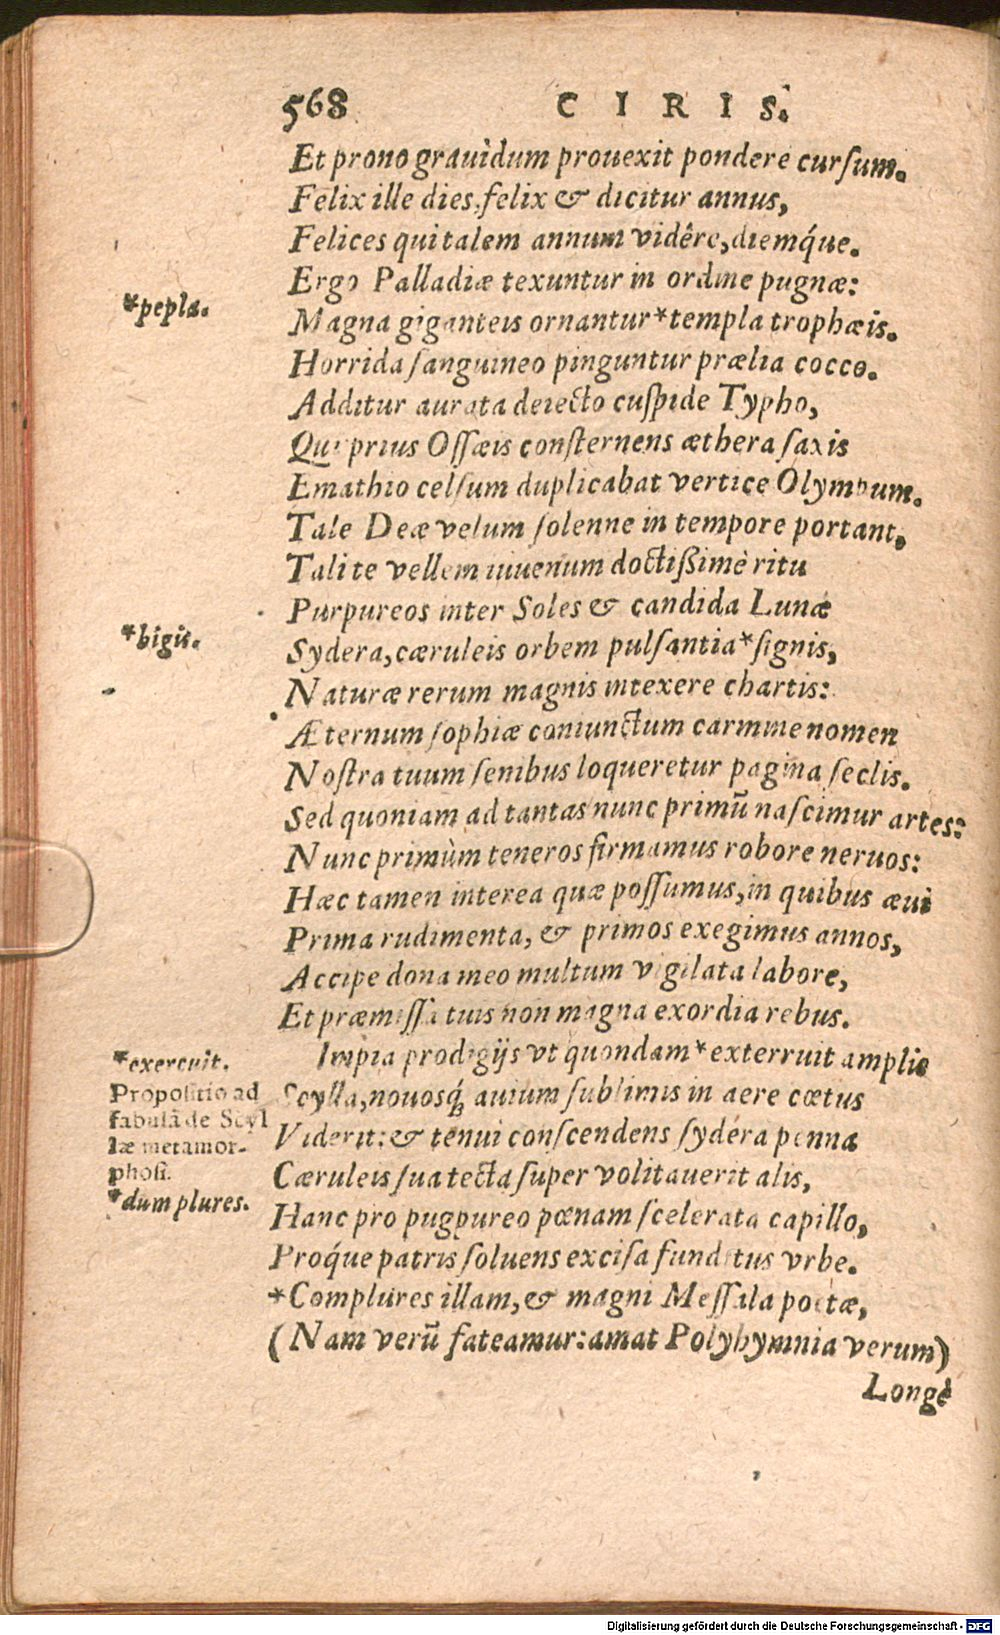 568 CIRIS.
Et prono grauidum prouexit pondere cursum.
Felix ille dies, felix & dicitur annus,
Felices qui talem annum vidêre, diemq́ue.
Ergo Palladiæ texuntur in ordine pugnæ:
*pepla.
Magna giganteis ornantur *templa trophæis.
Horrida sanguineo pinguntur prælia cocco.
Additur aurata deiecto cuspide Typho,
Qui prius Ossæis consternens æthera saxis
Emathio celsum duplicabat vertice Olympum.
Tale Deæ velum solenne in tempore portant,
Tali te vellem iuuenum doctißime ritu
Purpureos inter Soles & candida Lunæ
*bigis.
Sydera, cæruleis orbem pulsantia *signis,
Naturæ rerum magnis intexere chartis:
Æternum sophiæ coniunctum carmine nomen
Nostra tuum senibus loqueretur pagina seclis.
Sed quoniam ad tantas nunc primũ nascimur artes:
Nunc primùm teneros firmamus robore neruos:
Hæc tamen interea quæ possumus, in quibus æui
Prima rudimenta, & primos exegimus annos,
Accipe dona meo multum vigilata labore,
Et præmissa tuis non magna exordia rebus.
*exercuit.
Impia prodigijs vt quondam *exterruit amplis
Propositio ad
fabulã de Scyl
læ metamor-
phosi.
Scylla, nouosq; auium sublimis in aere cœtus
Viderit: & tenui conscendens sydera penna
Cæruleis sua tecta super volitauerit alis,
*dum plures.
Hanc pro pugpureo pœnam scelerata capillo,
Proq́ue patris soluens excisa funditus vrbe.
*Complures illam, & magni Messala poetæ,
(Nam verũ fateamur: amat Polyhymnia verum)
Longè
Digitalisierung gefördert durch die Deutsche Forschungsgemeinschaft - DFG